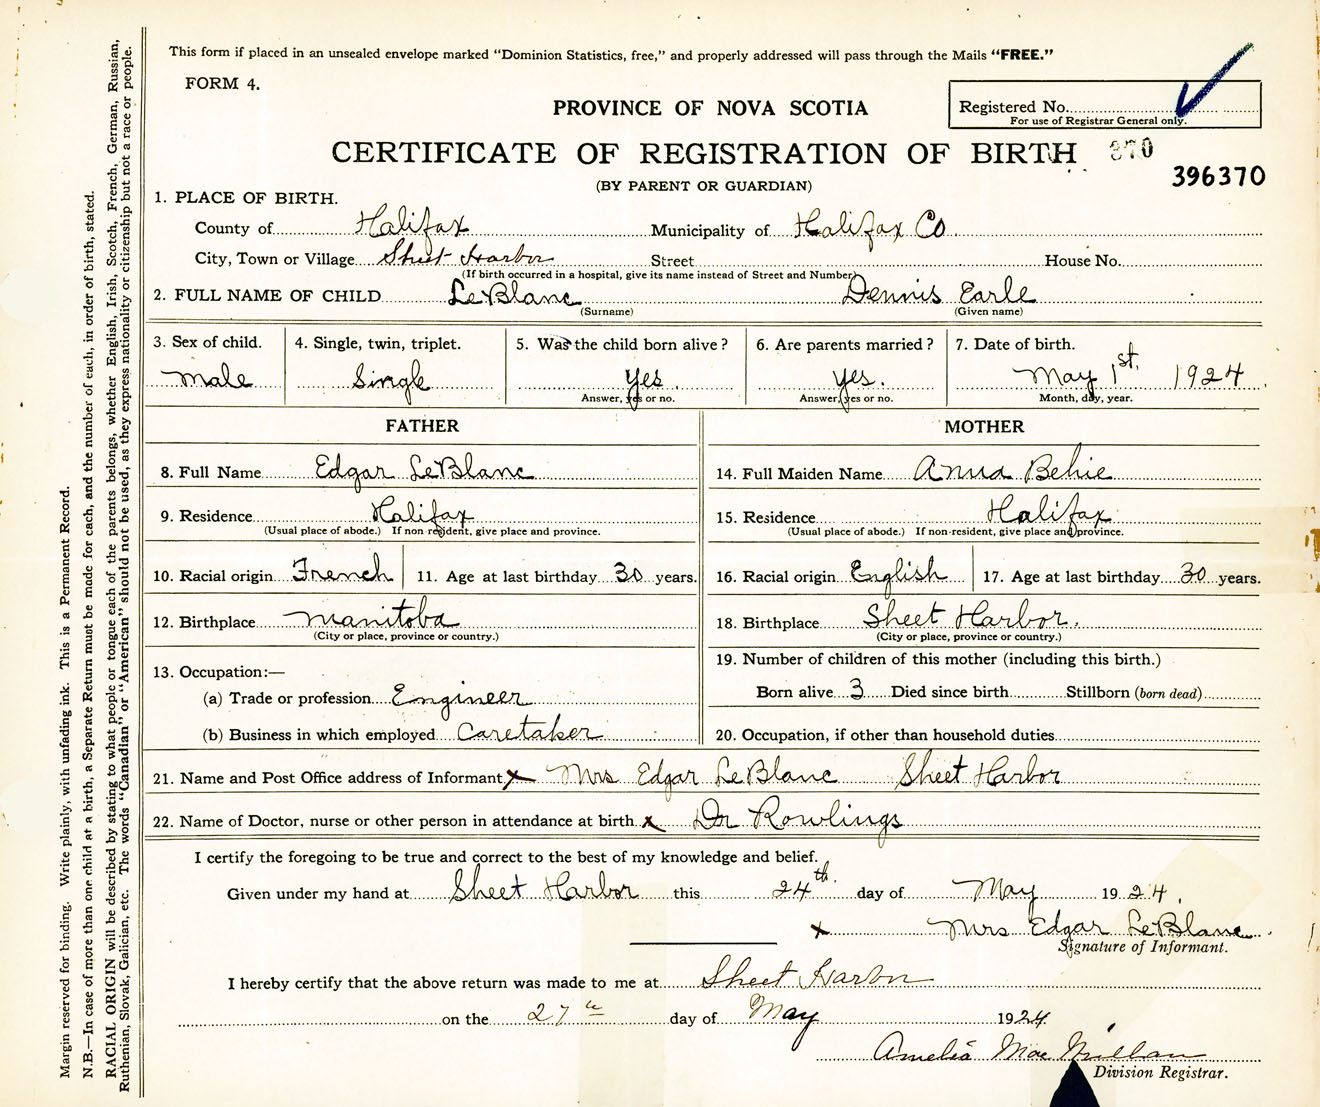 This form if placed in an unsealed envelope marked "Dominion Statistics, free," and properly addressed will pass through the Mails "FREE."
FORM 4.
PROVINCE OF NOVA SCOTIA
Registered No.
For use of Registrar General only.
CERTIFICATE OF REGISTRATION OF BIRTH 370
396370
(BY PARENT OR GUARDIAN)
1. PLACE OF BIRTH.
County of Halifax Municipality of Halifax Co.
City, Town or Village Sheet Harbor Street House No.
(If birth occurred in a hospital, give its name instead of Street and Number)
2. FULL NAME OF CHILD LeBlanc Dennis Earle
(Surname) (Given name)
3. Sex of child. 4. Single, twin, triplet. 5. Was the child born alive? 6. Are parents married? 7. Date of birth.
Male Single Yes. Yes. May 1st. 1924
Answer, yes or no. Answer, yes or no. Month, day, year.
FATHER MOTHER
8. Full Name Edgar LeBlanc 14. Full Maiden Name Anna Behie
9. Residence Halifax 15. Residence Halifax
(Usual place of abode.) If non-resident, give place and province. (Usual place of abode.) If non-resident, give place and province.
10. Racial origin French 11. Age at last birthday 30 years. 16. Racial origin English 17. Age at last birthday 30 years.
12. Birthplace Manitoba 18. Birthplace Sheet Harbor.
(City or place, province or country.) (City or place, province or country.)
13. Occupation:— 19. Number of children of this mother (including this birth.)
(a) Trade or profession Engineer Born alive 3 Died since birth Stillborn (born dead)
(b) Business in which employed Caretaker 20. Occupation, if other than household duties
21. Name and Post Office address of Informant x Mrs Edgar LeBlanc Sheet Harbor
22. Name of Doctor, nurse or other person in attendance at birth x Dr Rowlings
I certify the foregoing to be true and correct to the best of my knowledge and belief.
Given under my hand at Sheet Harbor this 24th. day of May 1924.
x Mrs Edgar LeBlanc
Signature of Informant.
I hereby certify that the above return was made to me at Sheet Harbor
on the 27th day of May 1924
Amelia MacMillan
Division Registrar.
Margin reserved for binding. Write plainly, with unfading ink. This is a Permanent Record.
N.B.—In case of more than one child at a birth, a Separate Return must be made for each, and the number of each, in order of birth, stated.
RACIAL ORIGIN will be described by stating to what people or tongue each of the parents belongs, whether English, Irish, Scotch, French, German, Russian,
Ruthenian, Slovak, Galician, etc. The words "Canadian" or "American" should not be used, as they express nationality or citizenship but not a race or people.